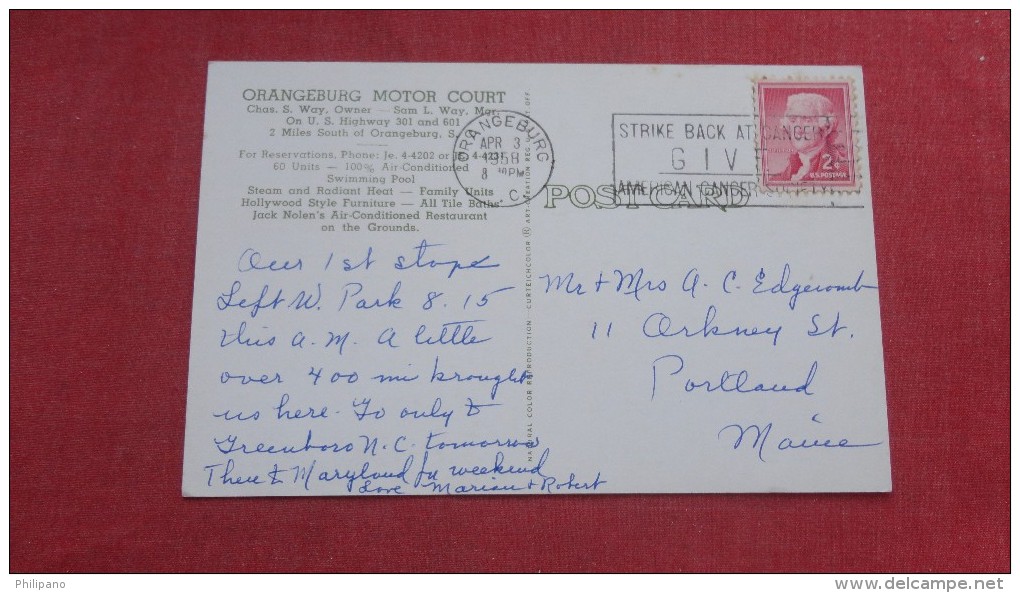 ORANGEBURG MOTOR COURT
Chas. S. Way, Owner — Sam L. Way, Mgr.
On U. S. Highway 301 and 601
2 Miles South of Orangeburg, S.
For Reservations, Phone: Je. 4-4202 or Je. 4-4231
60 Units — 100% Air-Conditioned
Swimming Pool
Steam and Radiant Heat — Family Units
Hollywood Style Furniture — All Tile Baths
Jack Nolen's Air-Conditioned Restaurant
on the Grounds.
ORANGEBURG
APR 3
1958
8 PM
C.
STRIKE BACK AT CANCER
GIVE
AMERICAN CANCER SOCIETY
2¢
U.S. POSTAGE
POST CARD
NATURAL COLOR REPRODUCTION - CURTEICHCOLOR ® ART-CREATION REG U S PAT OFF
Our 1st stop
Left W. Park 8.15
this a.m. A little
over 400 mi brought
us here. Go only to
Greenboro N.C. tomorrow
Then to Maryland for weekend
Love Marian + Robert
Mr + Mrs A. C. Edgecomb
11 Orkney St.
Portland
Maine
Philipano
http://www.delcampe.net